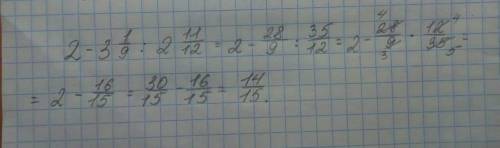 2 - 3 1/9 : 2 11/12 = 2 - 28/9 : 35/12 = 2 - 28/9 · 12/35 = 4 3 4 5
= 2 - 16/15 = 30/15 - 16/15 = 14/15.